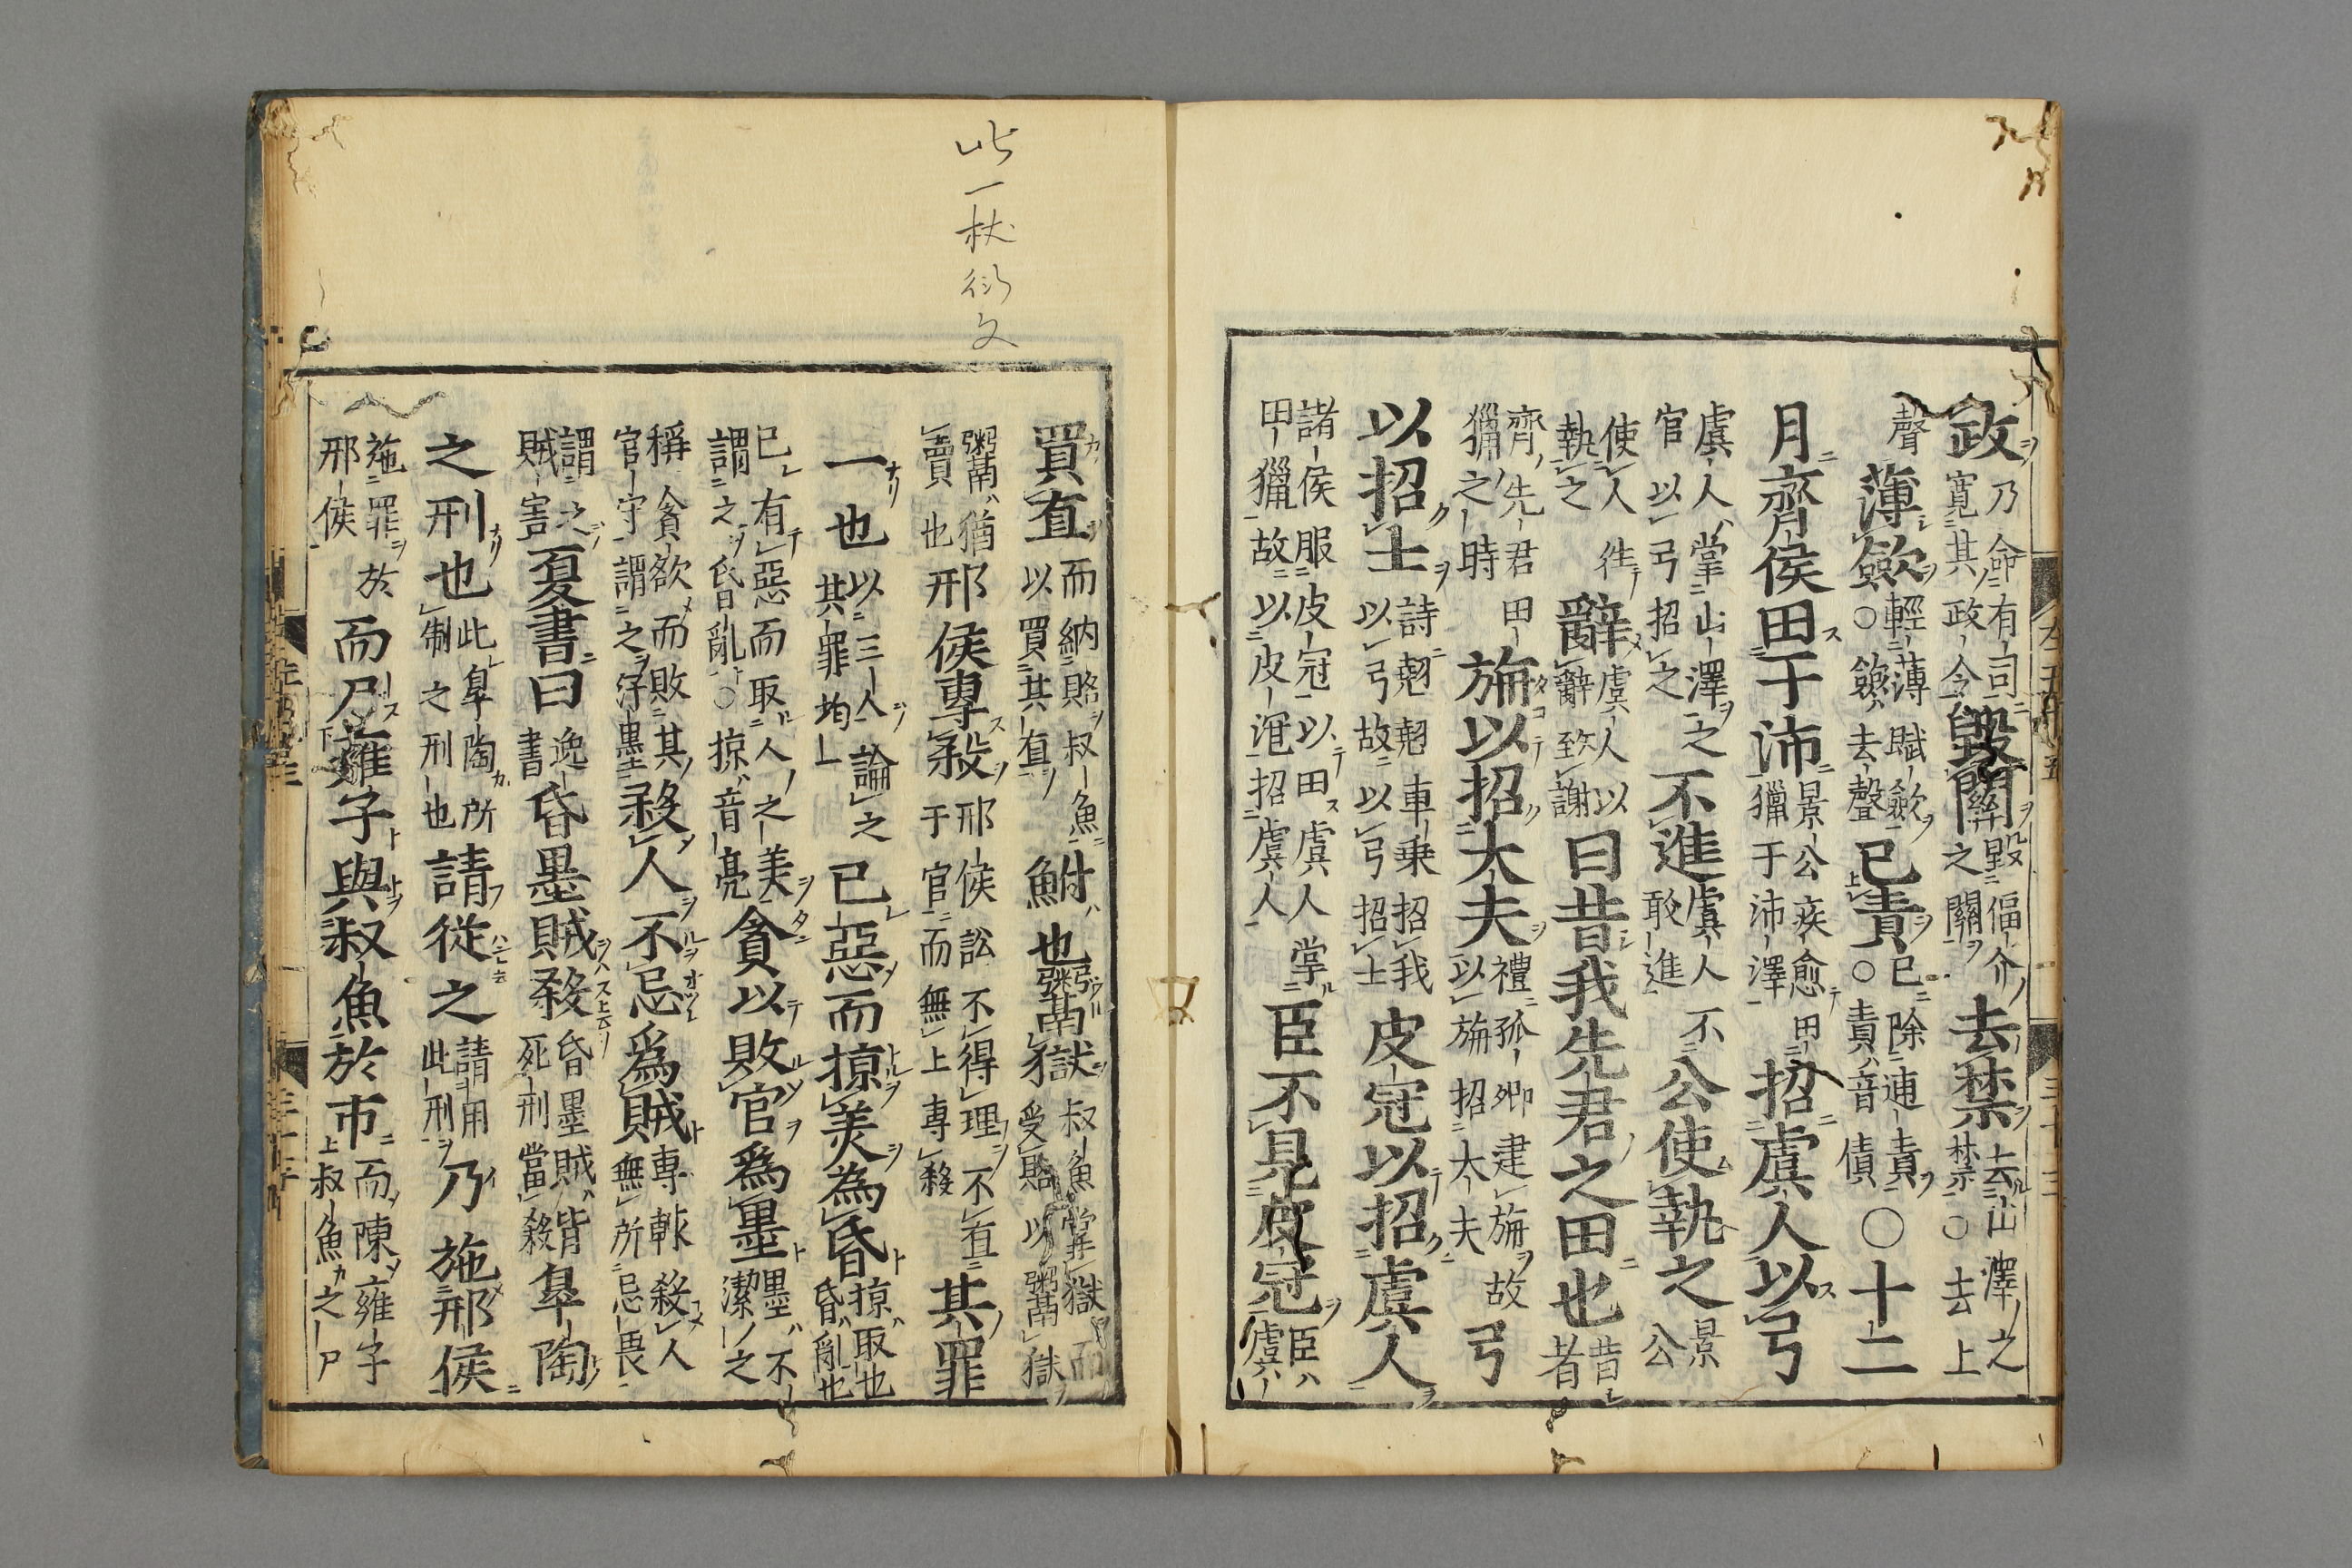 政乃命有司寬其政令毀關毀偪介之關去禁去山澤之禁○去上
聲薄斂輕薄賦斂○斂去聲已責已除逋責○責音債○十二
月齊侯田于沛景公疾愈田獵于沛澤招虞人以弓
虞人掌山澤之官以弓招之不進虞人不敢進公使執之景公
使人往執之辭虞人以辭致謝曰昔我先君之田也昔者
齊先君田獵之時旃以招大夫禮孤卿建旃故以旃招大夫弓
以招士詩翹翹車乘招我以弓故以弓招士皮冠以招虞人
諸侯服皮冠以田虞人掌田獵故以皮冠招虞人臣不見皮冠臣虞人
此一枚衍文
買直而納賂叔魚以買其直鮒也鬻獄叔魚掌獄而受賂以鬻獄
鬻猶賣也邢侯專殺邢侯訟不得理不直于官而無上專殺其罪
一也以三人論之其罪均一已惡而掠美為昏掠取也昏亂也
已有惡而取人之美謂之昏亂○掠音亮貪以敗官為墨墨不潔之
稱貪欲而敗其官守謂之汙墨殺人不忌為賊專輒殺人無所忌畏
謂之賊害夏書曰逸書昏墨賊殺昏墨賊皆死刑當殺皐陶
之刑也此皐陶所制之刑也請從之請用此刑乃施邢侯
施罪於邢侯而尸雍子與叔魚於市而陳雍子叔魚之尸